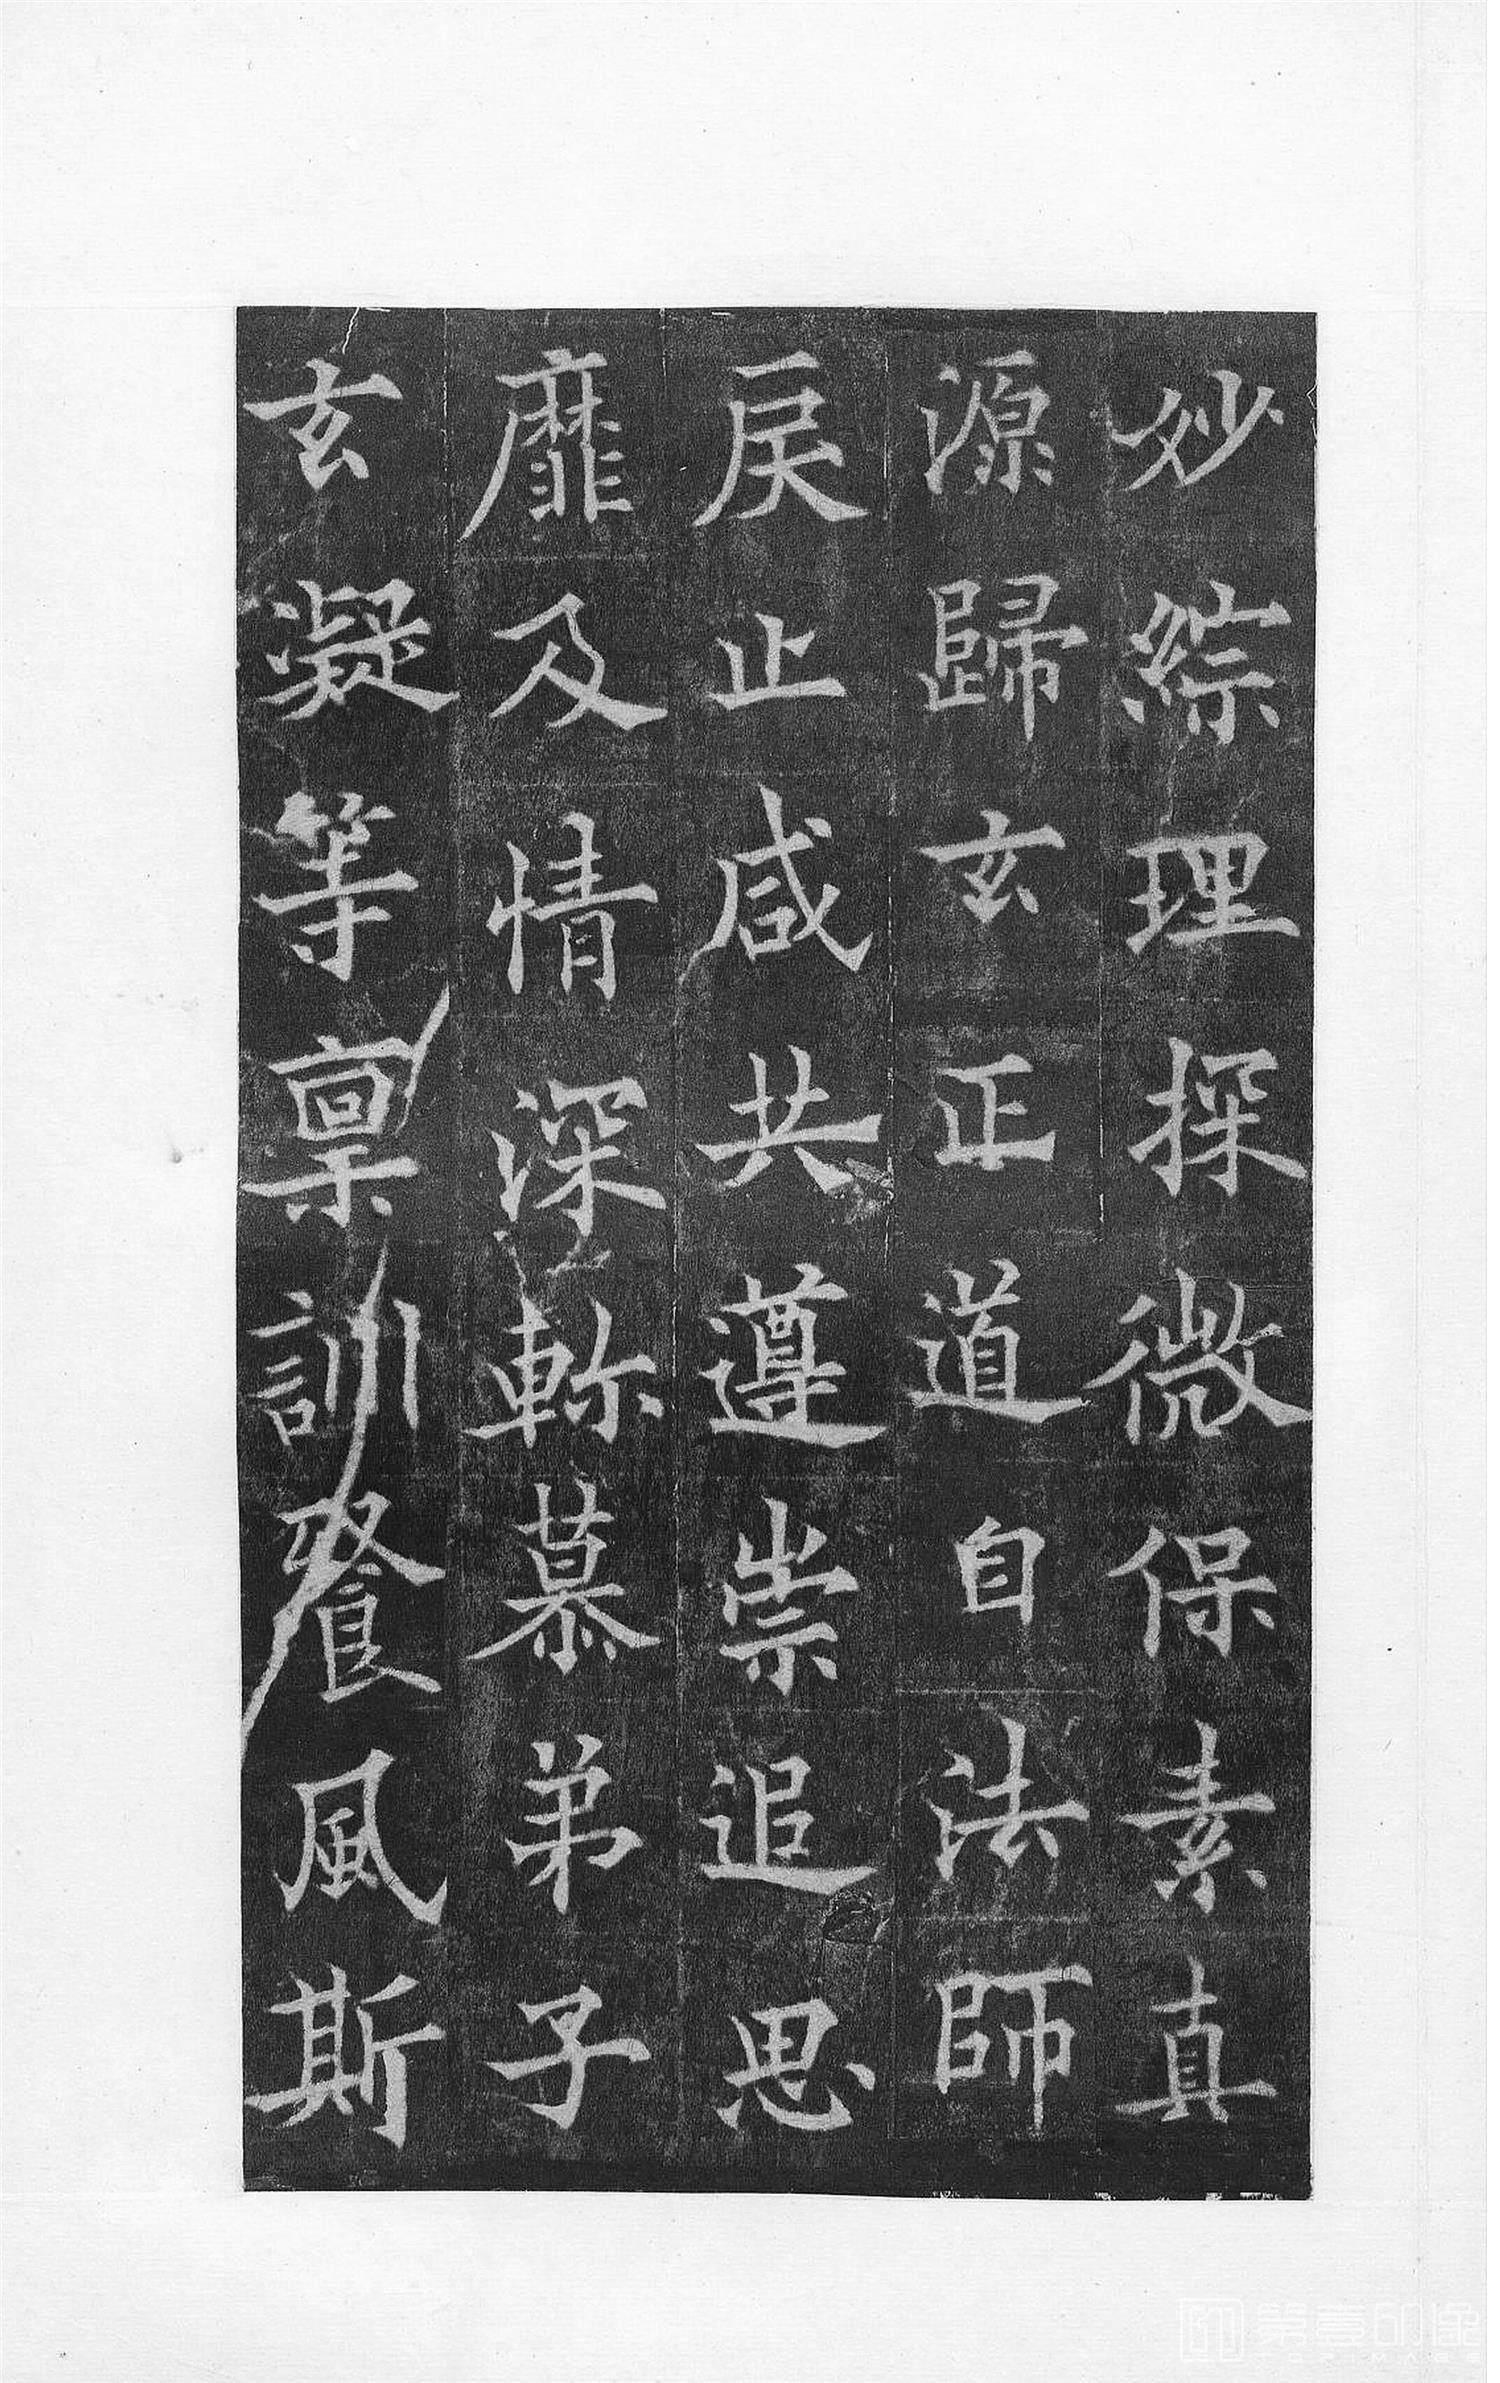 妙綜理探微保素真
源歸玄正道自法師
戾止咸共遵崇追思
靡及情深軫慕弟子
玄凝等稟訓餐風斯
第壹印像
TOPIMAGE